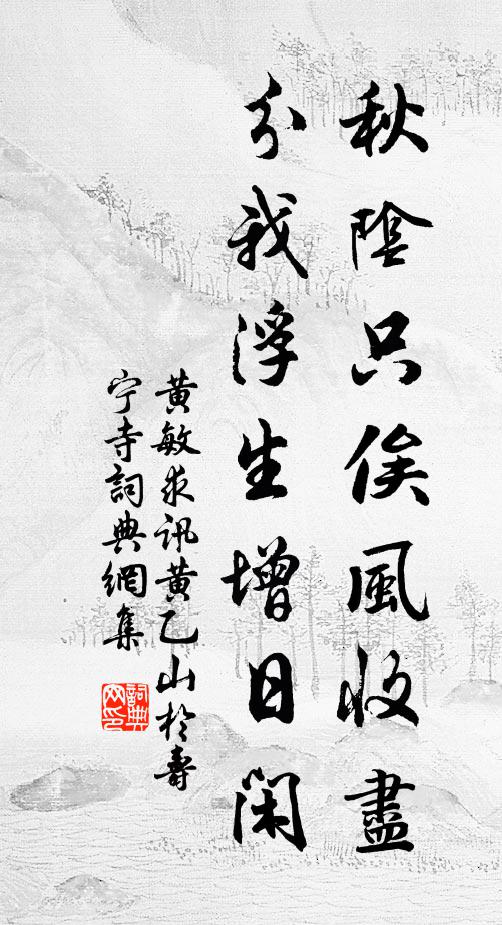 秋陰只俟風收盡
分我浮生增日閑
黃敏求訊黃乙山於壽
宁寺詞典網集
詞典
网印